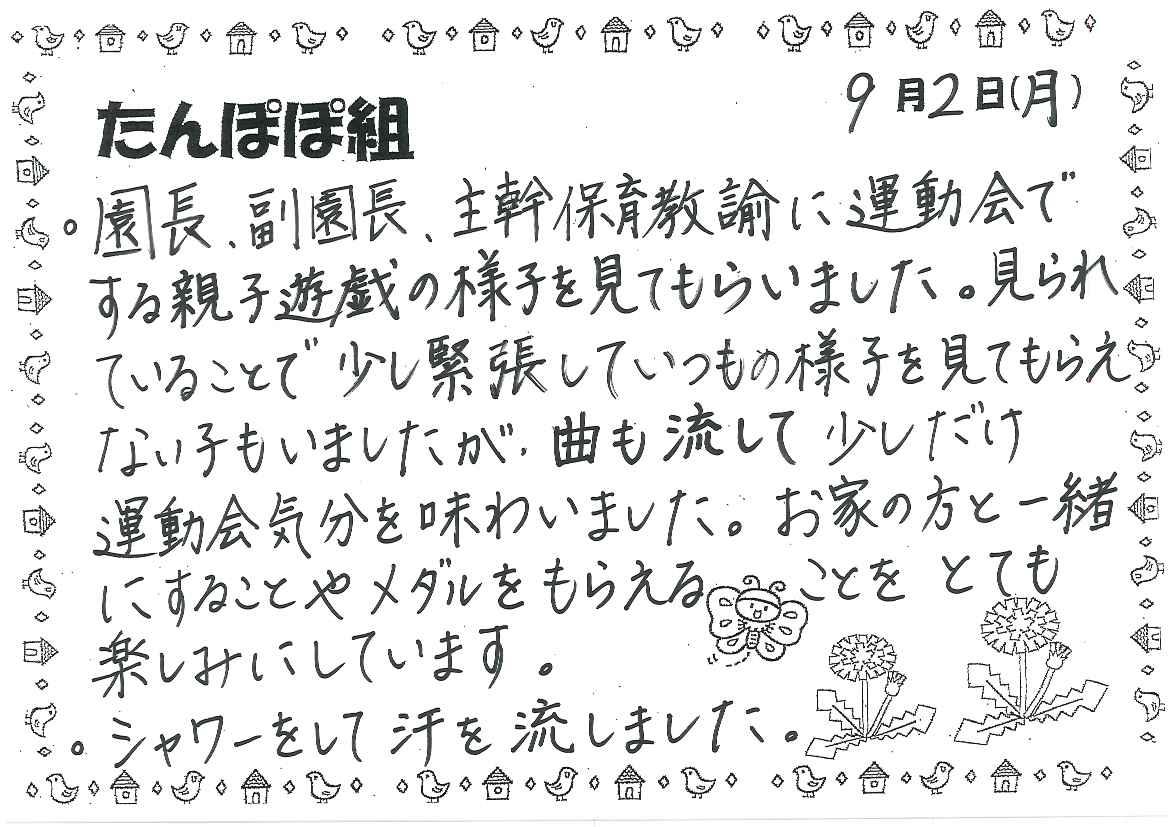 9月2日(月)
たんぽぽ組
。園長、副園長、主幹保育教諭に運動会で
する親子遊戯の様子を見てもらいました。見られ
ていることで少し緊張していつもの様子を見てもらえ
ない子もいましたが、曲も流して少しだけ
運動会気分を味わいました。お家の方と一緒
にすることやメダルをもらえることをとても
楽しみにしています。
。シャワーをして汗を流しました。